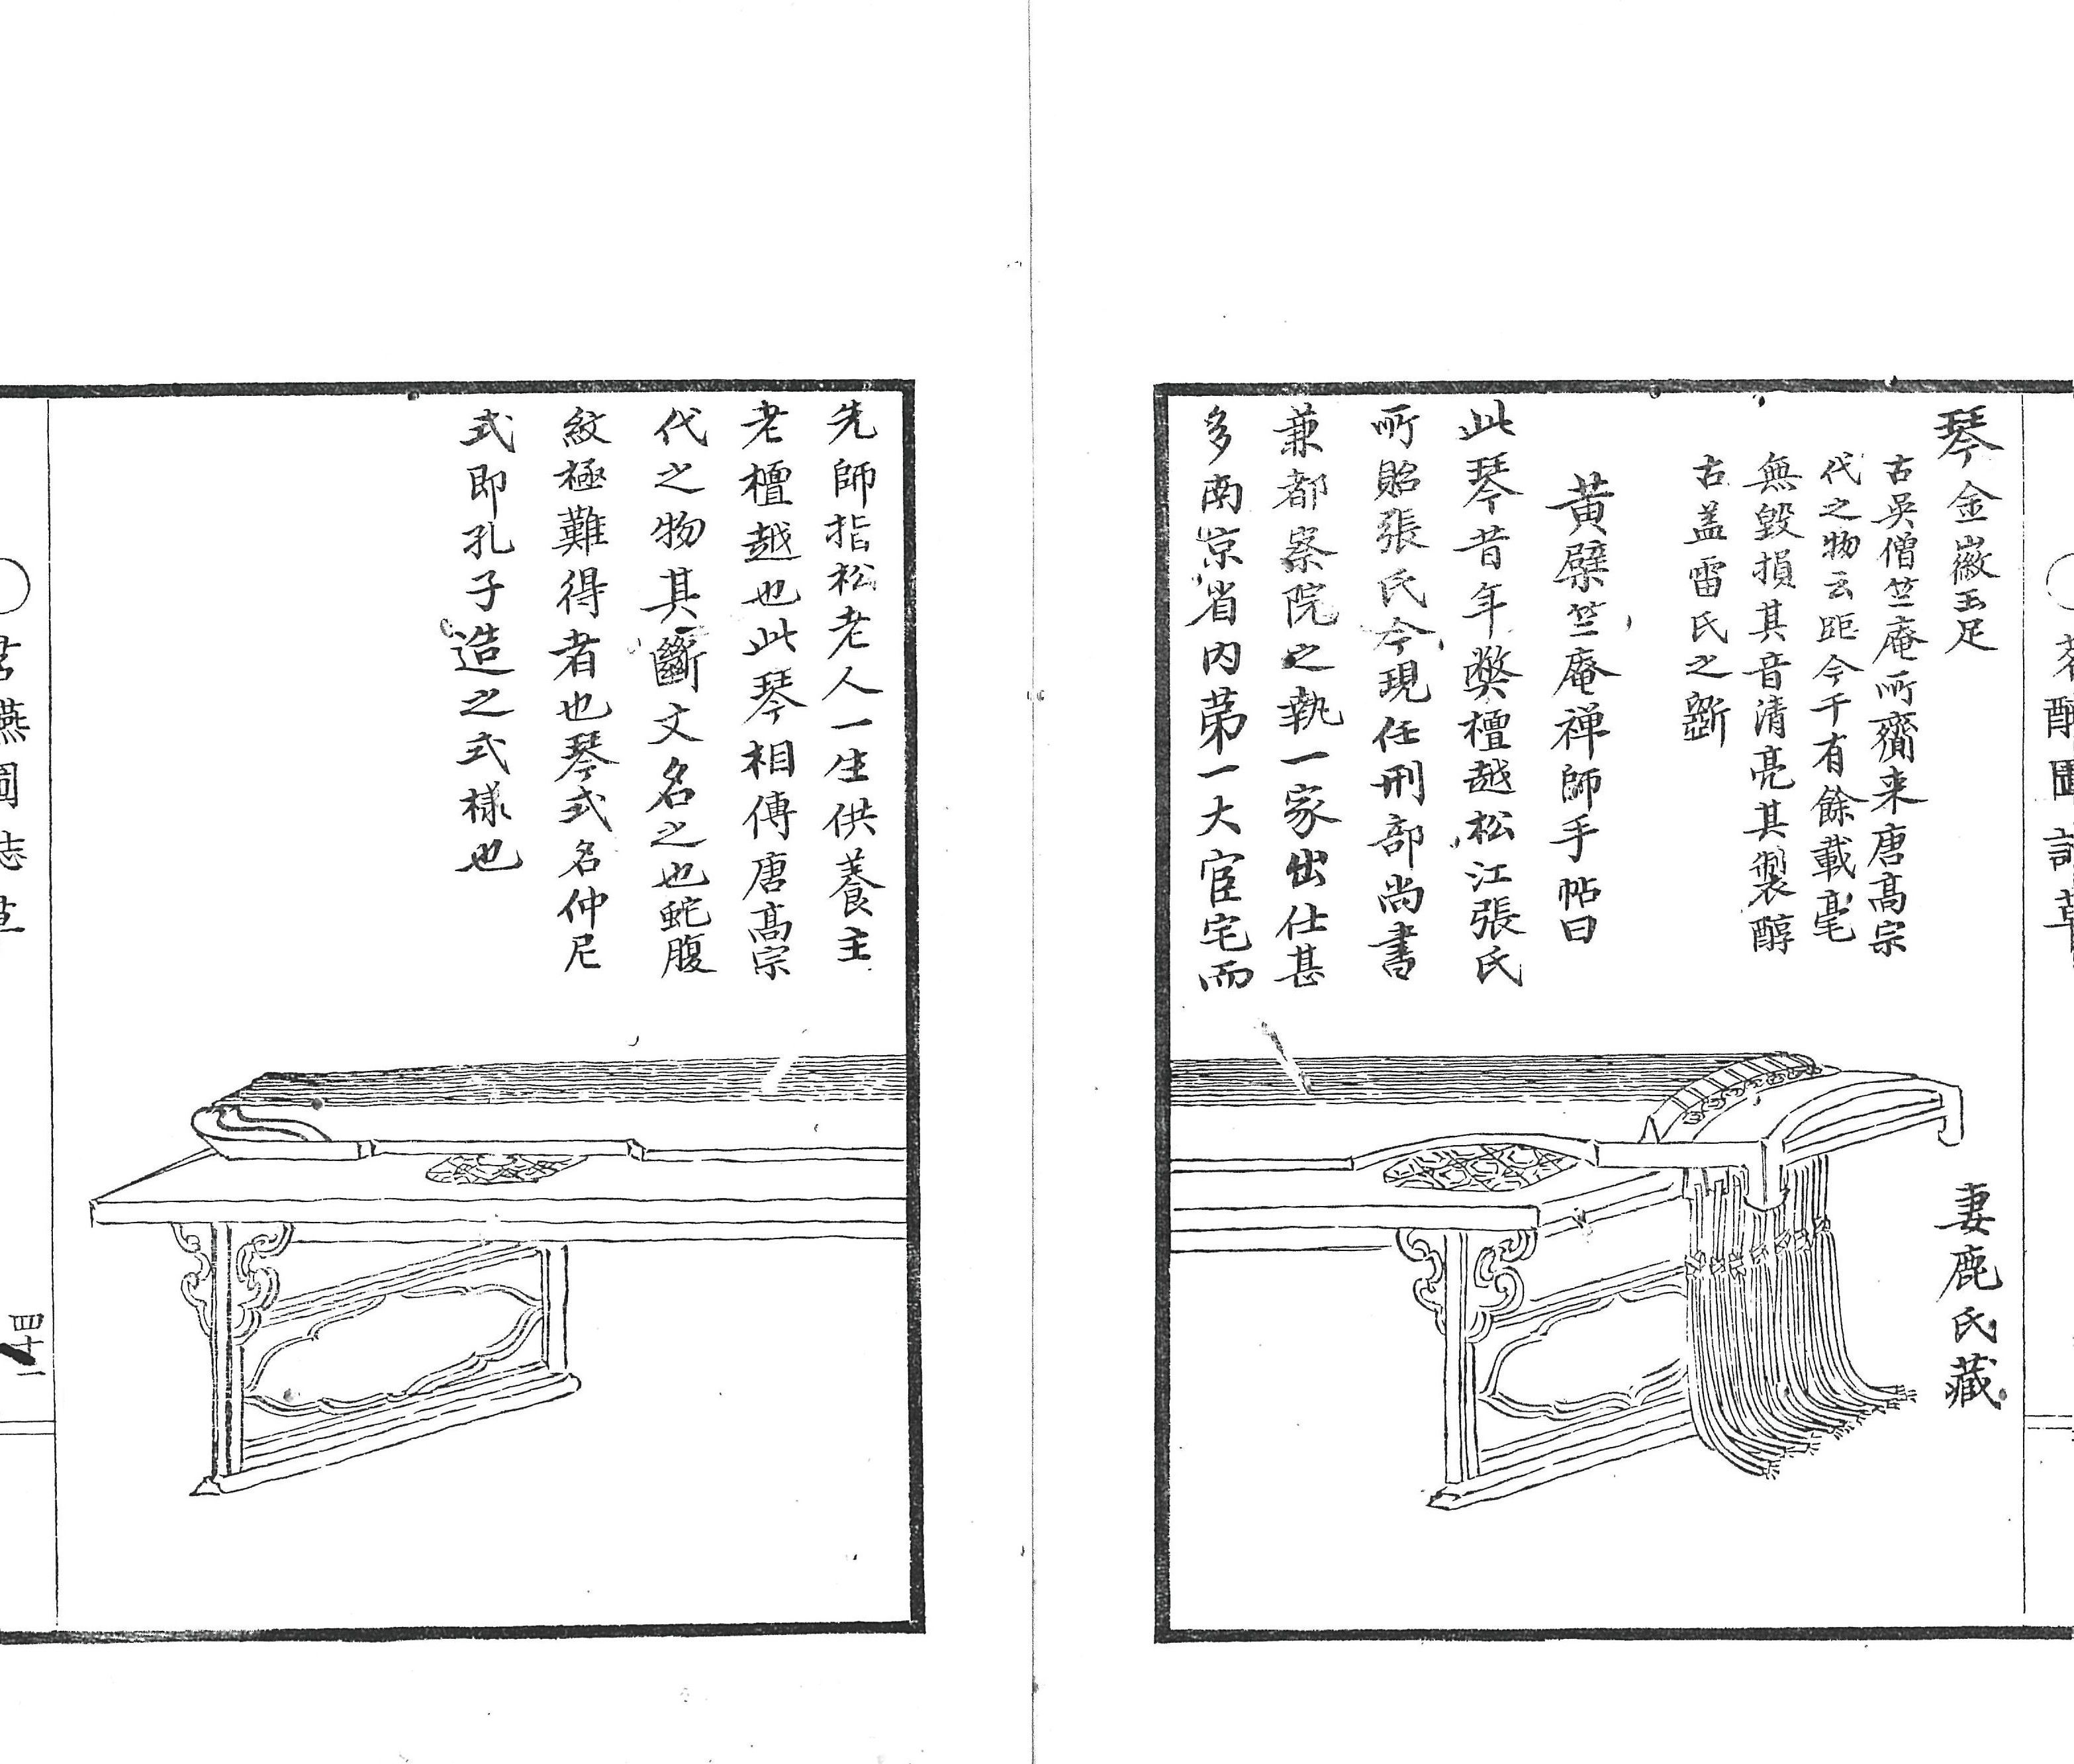 琴 金徽玉足
妻鹿氏藏
古吳僧竺庵所齎来唐髙宗
代之物云距今千有餘載毫
無毀損其音清亮其製醇
古盖雷氏之斵
黄檗竺庵禅師手帖曰
此琴昔年獘檀越松江張氏
所貽張氏今現任刑部尚書
兼都察院之執一家出仕甚
多南京省内苐一大宦宅而
先師指松老人一生供養主
老檀越也此琴相傳唐髙宗
代之物其斷文名之也蛇腹
紋極難得者也琴式名仲尼
式即孔子造之式樣也
四十一